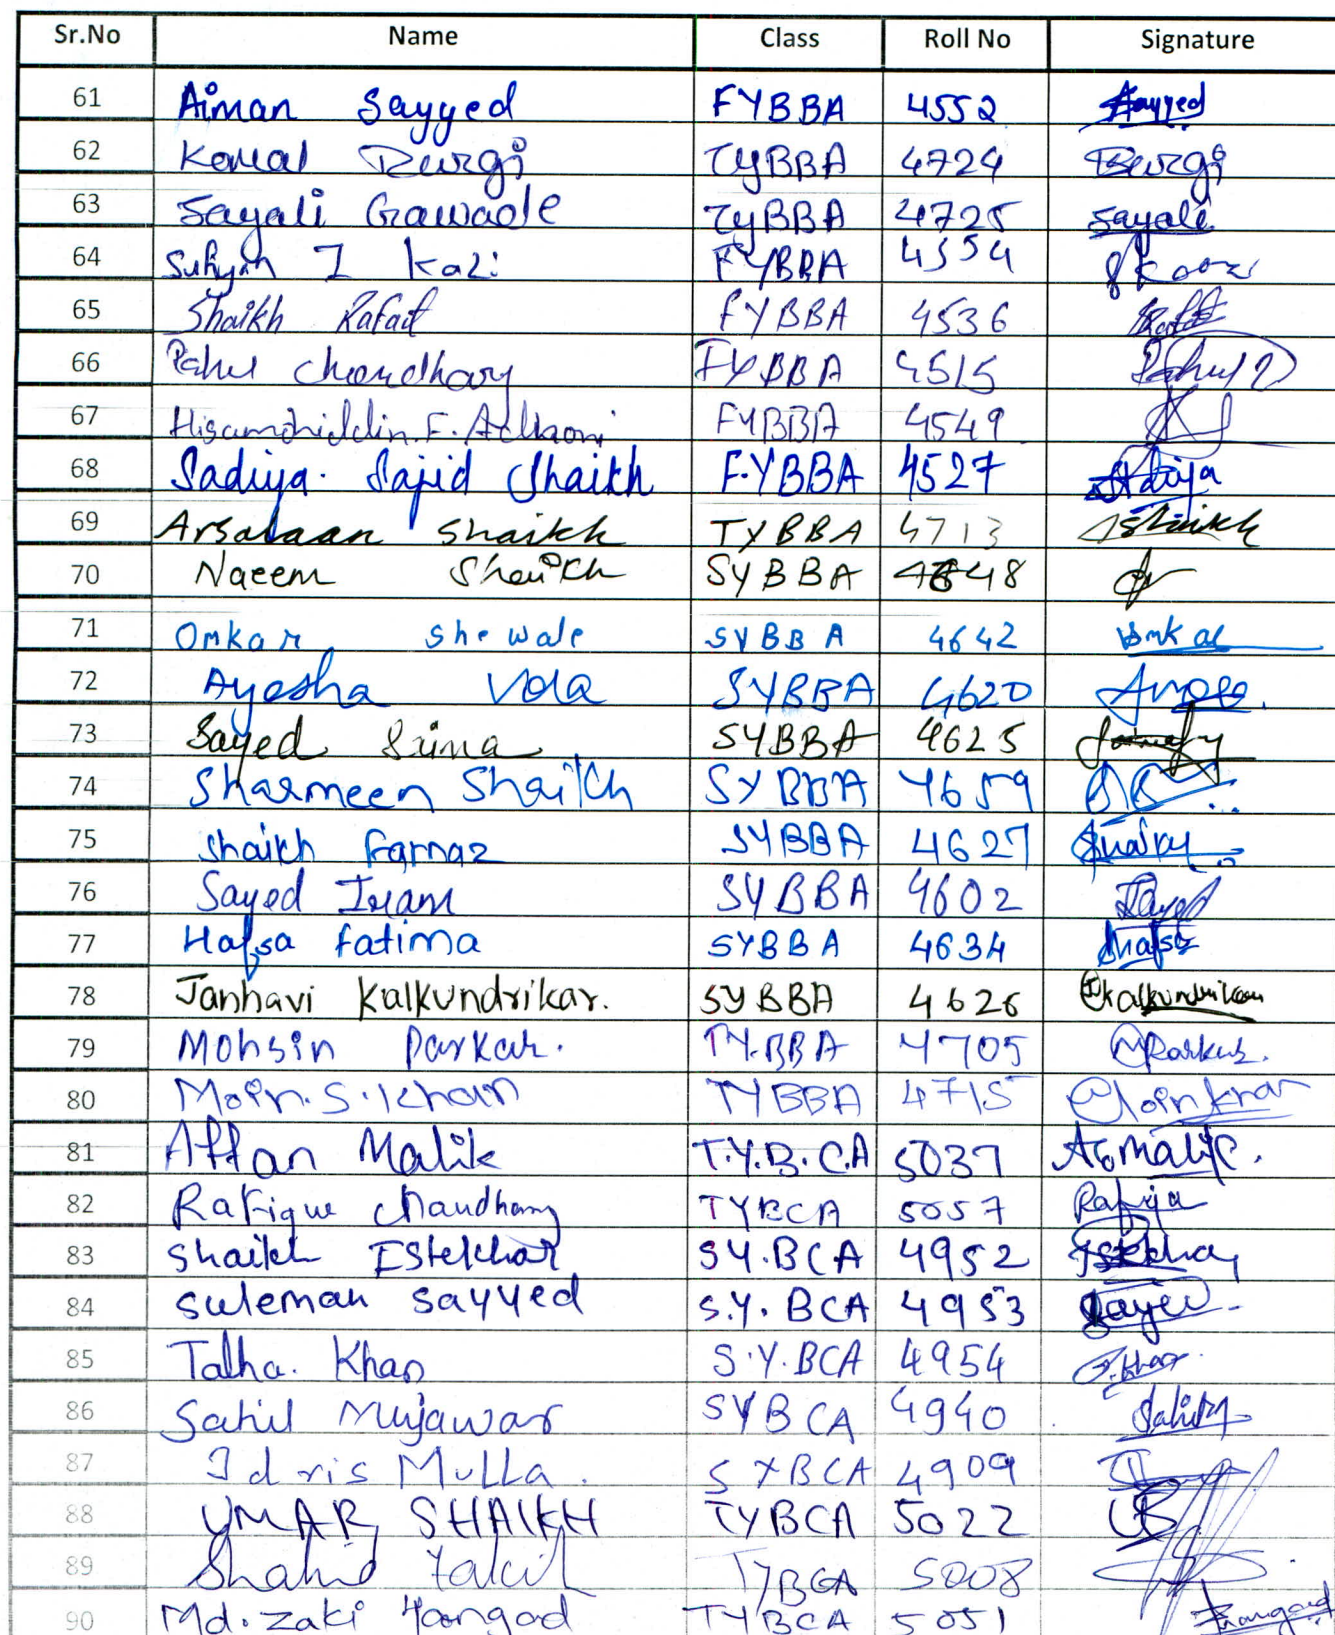 Sr.No Name Class Roll No Signature
61 Aiman Sayyed FYBBA 4552 Sayyed
62 Komal Durgi TYBBA 4724 Durgi
63 Sayali Gawade TYBBA 4725 Sayali
64 Sufiyan I Kazi FYBBA 4554
65 Shaikh Rafat FYBBA 4536
66 Rahul Choudhary FYBBA 4515 Rahul
67 FYBBA 4549
68 Sadiya. Sajid Shaikh F.YBBA 4527 Sadiya
69 Arsalaan Shaikh TYBBA 4713 AShaikh
70 Naeem Shaikh SYBBA 4648
71 Omkar Shewale SYBBA 4642 Omkar
72 Ayesha Vora SYBBA 4620
73 Sayed Saima SYBBA 4625
74 Sharmeen Shaikh SYBBA 4659
75 Shaikh Farnaz SYBBA 4627
76 Sayed Iram SYBBA 4602 Sayed
77 Hafsa Fatima SYBBA 4634 Hafsa
78 Janhavi Kalkundrikar. SYBBA 4626 JKalkundrikar
79 Mohsin Parkar. TY.BBA 4705 MParkar.
80 Moin.S.Khan TYBBA 4715 Moin khan
81 Affan Malik T.Y.B.C.A 5037
82 Rafique Chaudhary TYBCA 5057
83 Shaikh Istekhar SY.BCA 4952 Istekhar
84 Suleman Sayyed S.Y.BCA 4953 Sayed
85 Talha. Khan S.Y.BCA 4954 T.khan
86 Sahil Mujawar SYBCA 4940 SahilM
87 Idris Mulla. SYBCA 4909
88 UMAR SHAIKH TYBCA 5022 US
89 Shahid TYBCA 5008
90 Md. Zaki TYBCA 5051